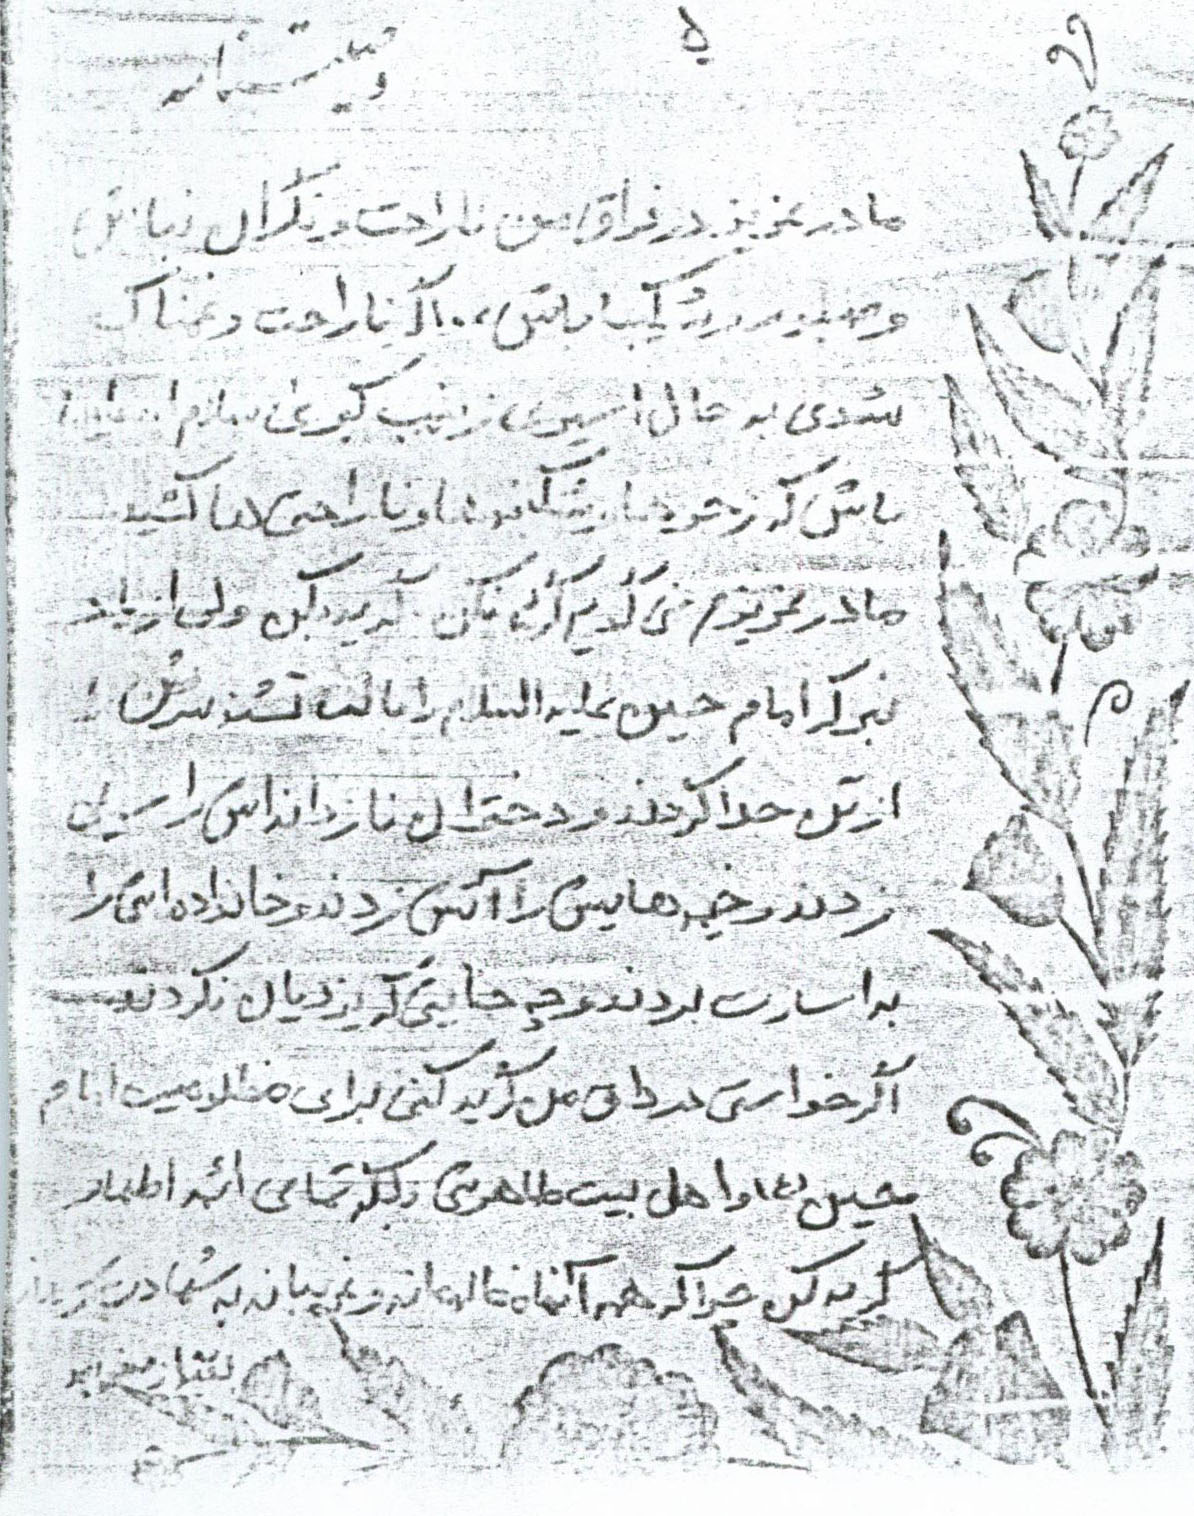 ۵
وصیتنامه
مادر عزیز در فراق من ناراحت و نگران نباش
و صبور و شکیبا باش، اگر ناراحت و غمناک
شدی به حال اسیری زینب کبری سلام الله علیها
باش که زجرها و شکنجه‌ها و ناراحتی‌ها کشید
مادر عزیزم نمی‌گویم گریه نکن گریه بکن ولی از یاد
نبر که امام حسین علیه السلام را با لب تشنه سرش را
از تن جدا کردند و دختران نازدانه‌اش را سیلی
زدند و خیمه‌هایش را آتش زدند و خانواده‌اش را
به اسارت بردند و چه جنایتی که یزیدیان نکردند
اگر خواستی در داغ من گریه کنی برای مظلومیت امام
حسین (ع) و اهل بیت طاهرش و بلکه تمامی ائمه اطهار
گریه کن چرا که همه آنها مظلومانه و غریبانه به شهادت رسیدند